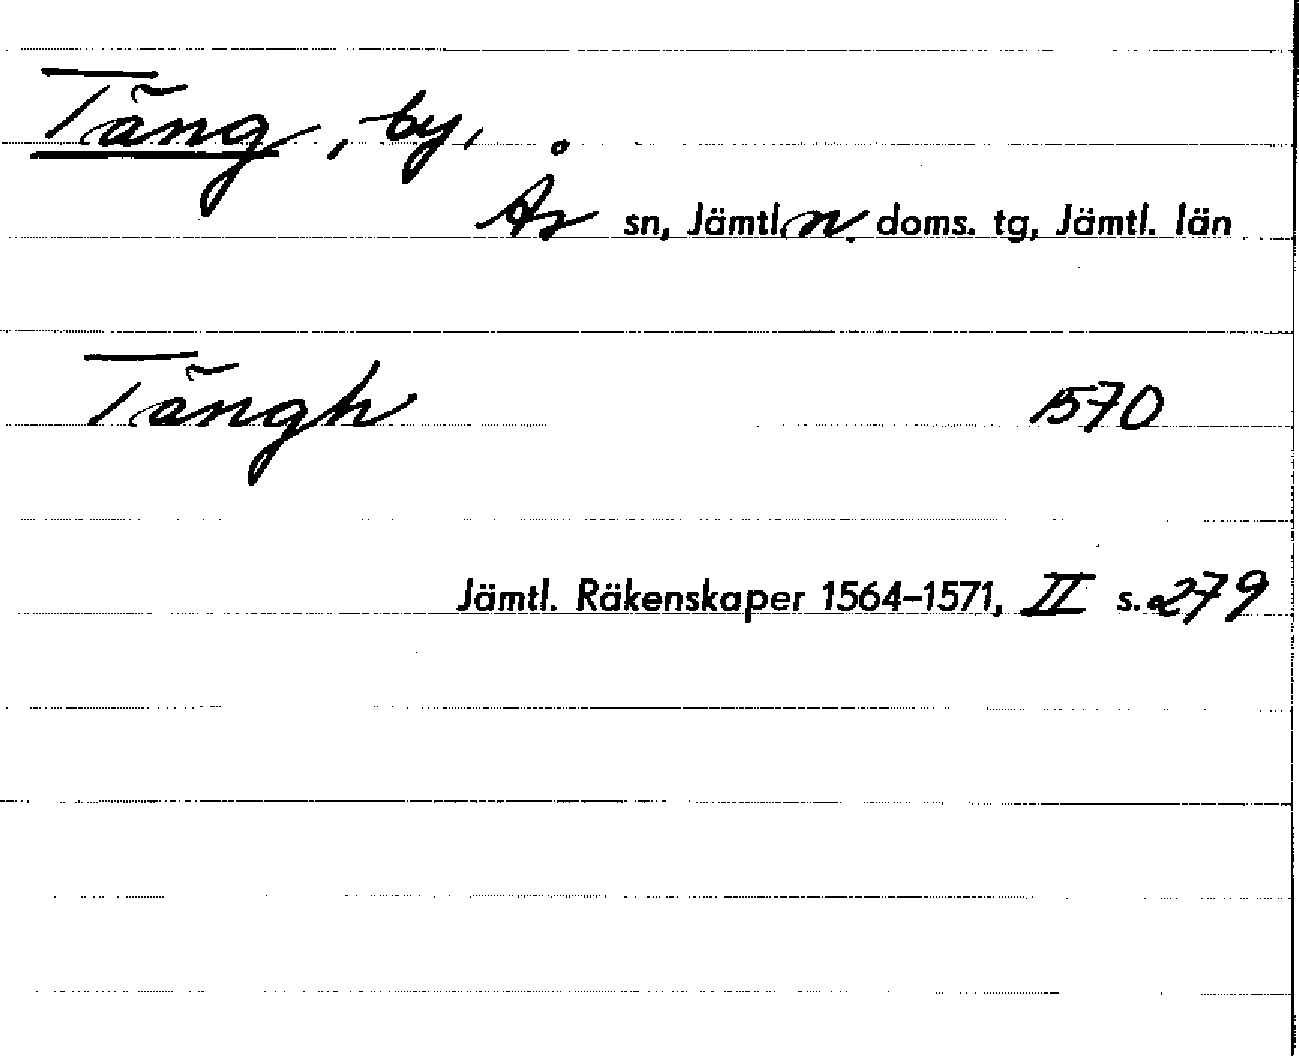 Täng, by,
Ås sn, Jämtl. n. doms. tg, Jämtl. län
Tängh 1570
Jämtl. Räkenskaper 1564–1571, II s. 279